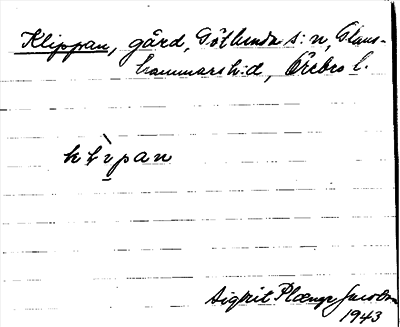 Klippan, gård, Götlunda s:n, Glans-
hammars h:d, Örebro l.
Sigrit Plænge Jacobson
1943